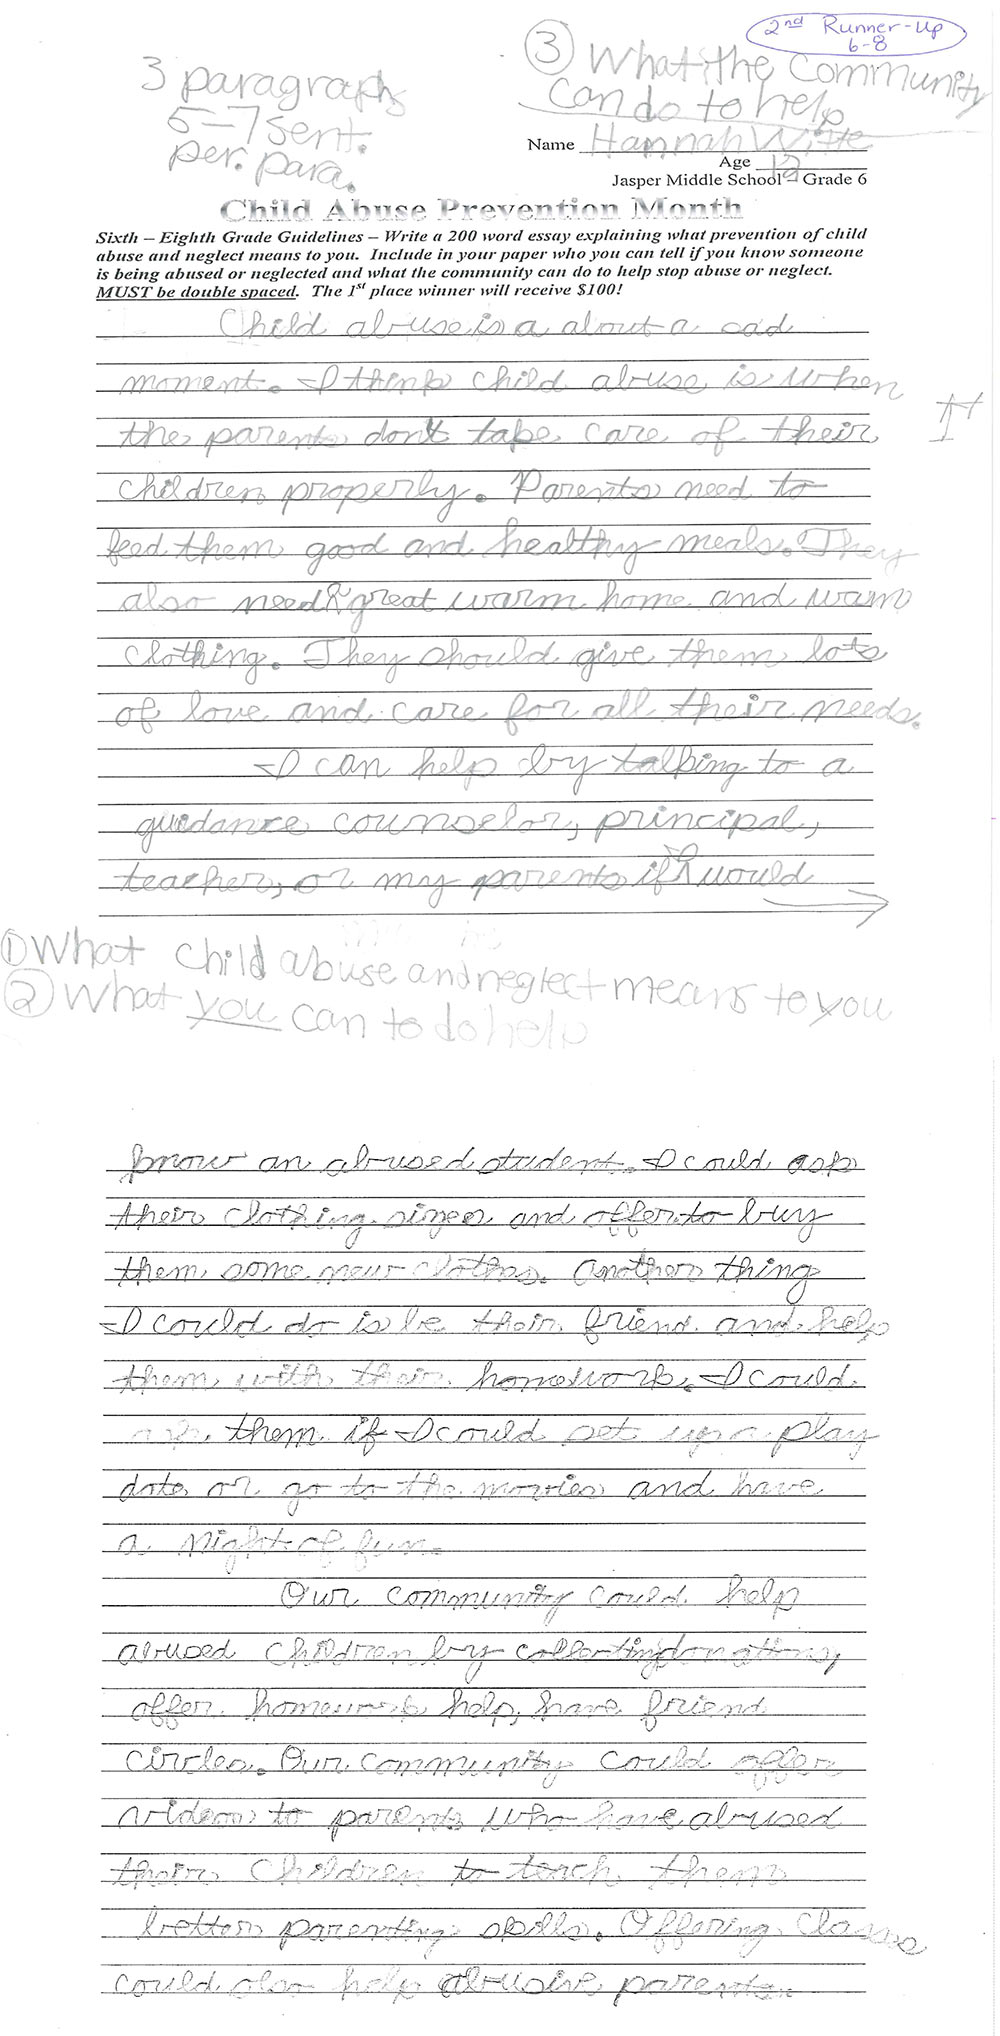 2nd Runner-Up
6-8
3 paragraphs
5-7 sent.
per. para.
③ What the Community
can do to help
Name Hannah Witte
Age 12
Jasper Middle School - Grade 6
Child Abuse Prevention Month
Sixth – Eighth Grade Guidelines – Write a 200 word essay explaining what prevention of child
abuse and neglect means to you. Include in your paper who you can tell if you know someone
is being abused or neglected and what the community can do to help stop abuse or neglect.
MUST be double spaced. The 1st place winner will receive $100!
Child abuse is a about a cad
moment. I think child abuse is when
the parents don't take care of their
children properly. Parents need to
feed them good and healthy meals. They
also need great warm home and warm
clothing. They should give them lots
of love and care for all their needs.
I can help by talking to a
guidance counselor, principal,
teacher, or my parents if I would
① What child abuse and neglect means to you
② What you can to do help
know an abused student. I could ask
their clothing sizes and offer to buy
them some new cloths. Another thing
I could do is be their friend and help
them with their homework. I could
ask them if I could set up a play
date or go to the movies and have
a night of fun.
Our community could help
abused children by collecting donations,
offer homework help, have friend
circles. Our community could offer
videos to parents who have abused
their children to teach them
better parenting skills. Offering classes
could also help abusive parents.